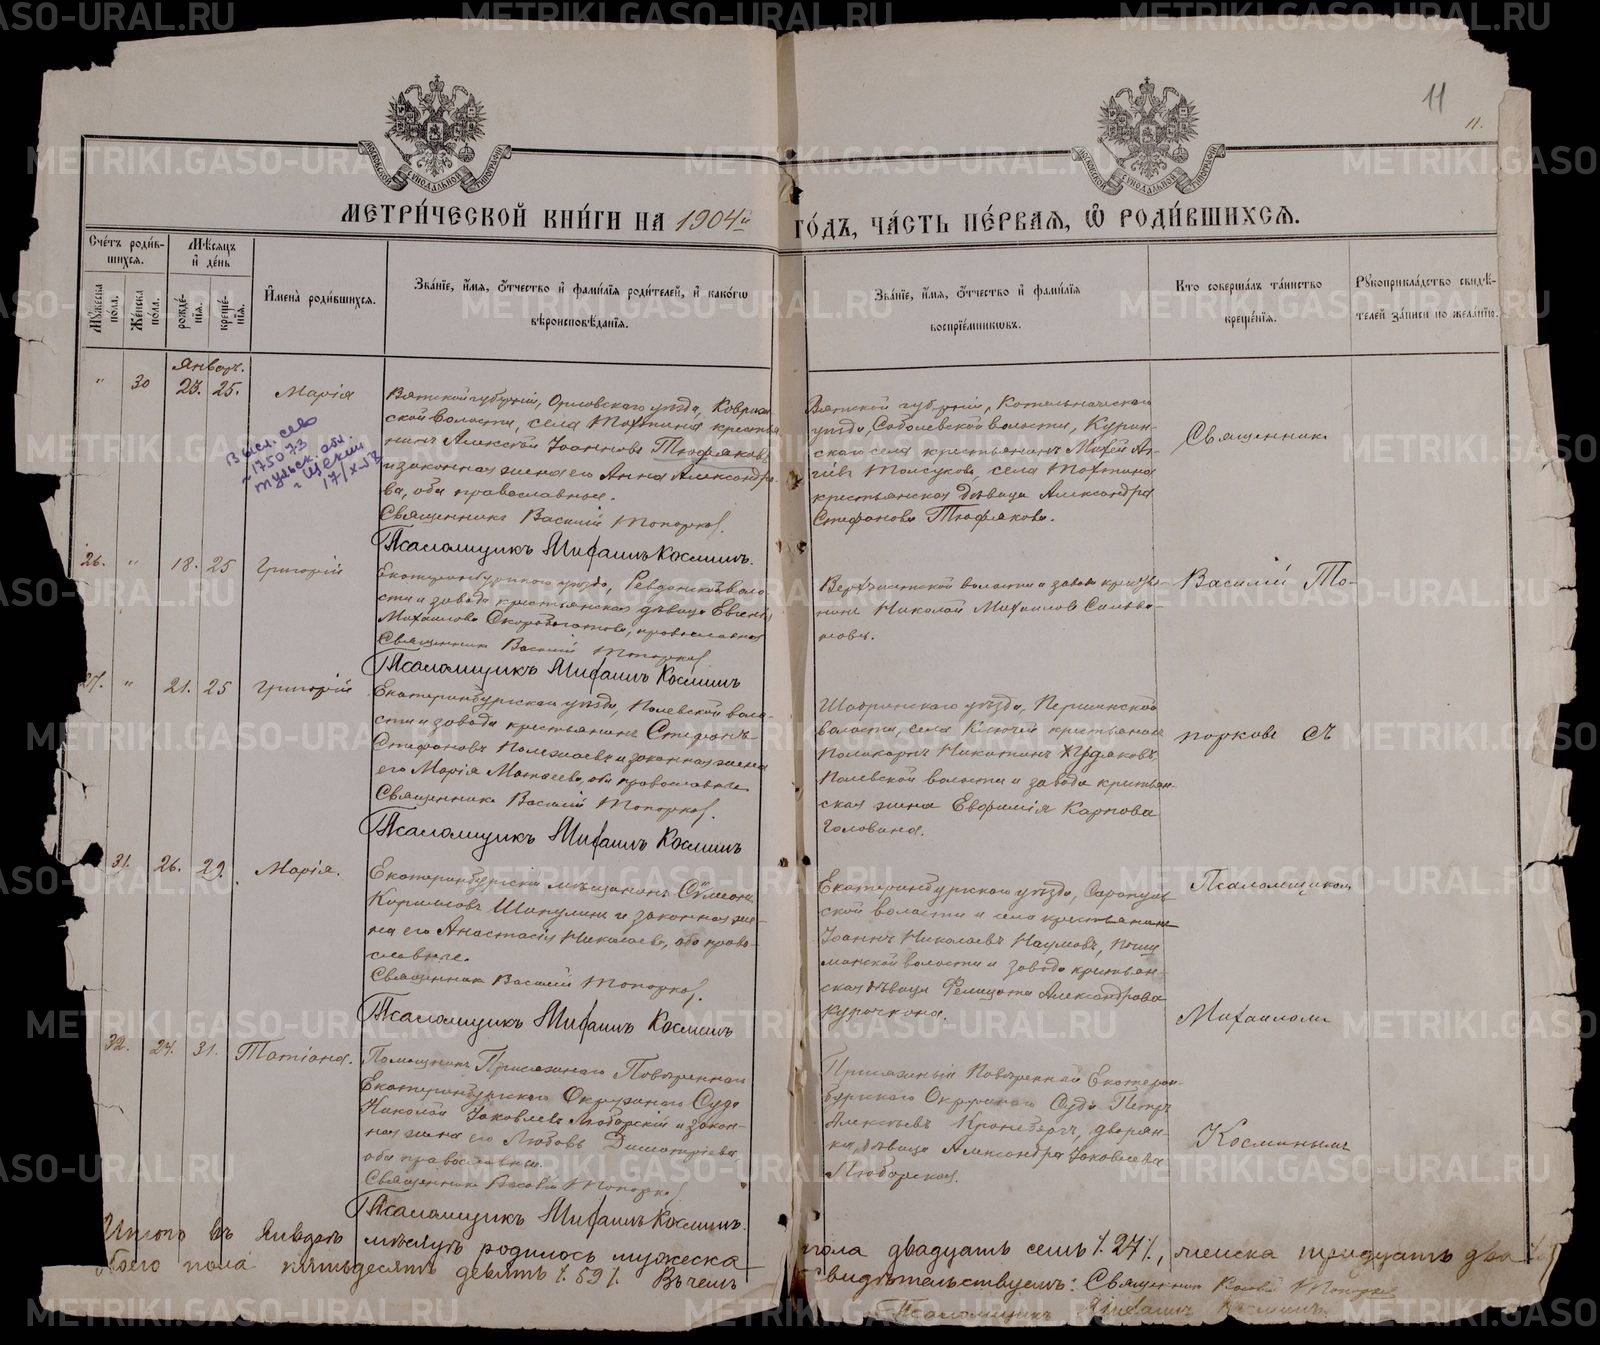 11
11.
МОСКОВСКОЙ СУНОДАЛЬНОЙ ТИПОГРАФІИ
МОСКОВСКОЙ СУНОДАЛЬНОЙ ТИПОГРАФІИ
МЕТРИ́ЧЕСКОЙ КНИ́ГИ НА 1904й ГО́ДЪ, ЧА́СТЬ ПЕ́РВАЯ, Ѿ РОДИ́ВШИХСЯ.
Сче́тъ роди́в-
шихся.
Мѣ́сяцъ
и҆ де́нь
Мꙋ́жеска по́ла.
Же́нска по́ла.
рожде́-нїя.
креще́-нїя.
И҆мена̀ роди́вшихся.
Зва́нїе, и҆́мя, ѻ҆́тчество и҆ фами́лїя роди́телей, и҆ како́гѡ
вѣроисповѣ́данїя.
Зва́нїе, и҆́мя, ѻ҆́тчество и҆ фами́лїя
воспрїе́мникѡвъ.
Кто̀ соверша́лъ та́инство
креще́нїя.
Рꙋкоприкла́дство свидѣ́-
телей за́писи по жела́нїю.
Январь.
" 30 23. 25. Марія
Вятской губерніи, Орловскаго уѣзда,
ской волости, села Тохтина крестья-
нинъ Алексѣй Іоанновъ Тюфяковъ
и законная жена его Анна Александро-
ва, оба православные.
Священникъ Василій Топорков.
Псаломщикъ Михаилъ Косминъ.
Вятской губерніи, Котельническаго
уѣзда, Соболевской волости,
скаго села крестьянинъ
села Тохтина
крестьянская дѣвица Александра
Стефанова Тюфякова.
Священникъ
175073
17/X-
26. " 18. 25 Григорій
Екатеринбургскаго уѣзда, Ревдинской воло-
сти и завода крестьянская дѣвица Евгенія
Михаилова Скоробогатова, православная
Священникъ Василій Топорков
Псаломщикъ Михаилъ Косминъ
волости и завода крестья-
нинъ Николай Михаиловъ
Василій То-
27. " 21. 25 Григорій
Екатеринбургскаго уѣзда, Полевской воло-
сти и завода крестьянинъ Стефанъ
Стефановъ и законная жена
его Марія оба православные
Священникъ Василій Топорков.
Псаломщикъ Михаилъ Косминъ
Шадринскаго уѣзда, Першинской
волости, села Ключей крестьянинъ
Поликарпъ Никитинъ
Полевской волости и завода крестьян-
ская жена Евфимія Карпова
Голованова.
порковъ съ
31. 26. 29. Марія.
Екатеринбургскій мѣщанинъ Сѵмеонъ
и законная же-
на его Анастасія Николаева, оба право-
славные.
Священникъ Василій Топорков.
Псаломщикъ Михаилъ Косминъ
Екатеринбургскаго уѣзда,
ской волости и села крестьянинъ
Іоаннъ Николаевъ Наумовъ,
манской волости и завода крестьян-
ская дѣвица Александрова
Курочкина.
Псаломщикомъ
Михаиломъ
32. 24. 31. Татіана.
Помощникъ Присяжнаго Повѣреннаго
Екатеринбургскаго Окружнаго Суда
Николай Іаковлевъ Люборскій и закон-
ная жена его Любовь Димитріева
оба православные.
Священникъ Василій Топорков
Псаломщикъ Михаилъ Косминъ.
Присяжный Повѣренный Екатерин-
бургскаго Окружнаго Суда Петръ
Алексѣевъ Кронебергъ, дворян-
ка, дѣвица Александра Іаковлева
Люборская.
Косминымъ
Итого въ Январѣ мѣсяцѣ родилось мужеска пола двадцать семь /.27/., женска тридцать два
обоего пола пятьдесятъ девять /.59/. Въ чемъ свидѣтельствуемъ: Священникъ Василій Топорков
Псаломщикъ Михаилъ Косминъ.
METRIKI.GASO-URAL.RU